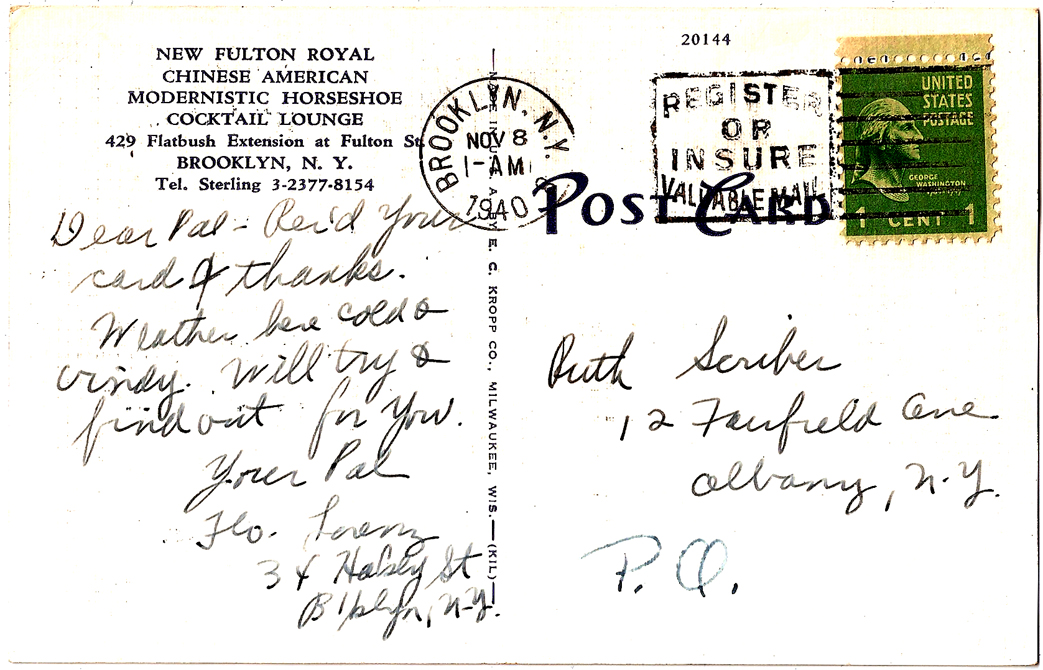 NEW FULTON ROYAL
CHINESE AMERICAN
MODERNISTIC HORSESHOE
COCKTAIL LOUNGE
429 Flatbush Extension at Fulton St.
BROOKLYN, N. Y.
Tel. Sterling 3-2377-8154
Dear Pal - Rec'd Your
card & thanks.
Weather here cold &
windy. Will try &
find out for You.
Your Pal
Flo. Lorenz
34 Halsey St
B'klyn, N.Y.
E. C. KROPP CO., MILWAUKEE, WIS.—(KIL)
20144
BROOKLYN, N.Y.
NOV 8
1-AM
1940
REGISTER
OR
INSURE
VALUABLE MAIL
POST CARD
UNITED
STATES
POSTAGE
GEORGE
WASHINGTON
1 CENT 1
Ruth Scriber
12 Fairfield Ave
Albany, N.Y.
P. O.